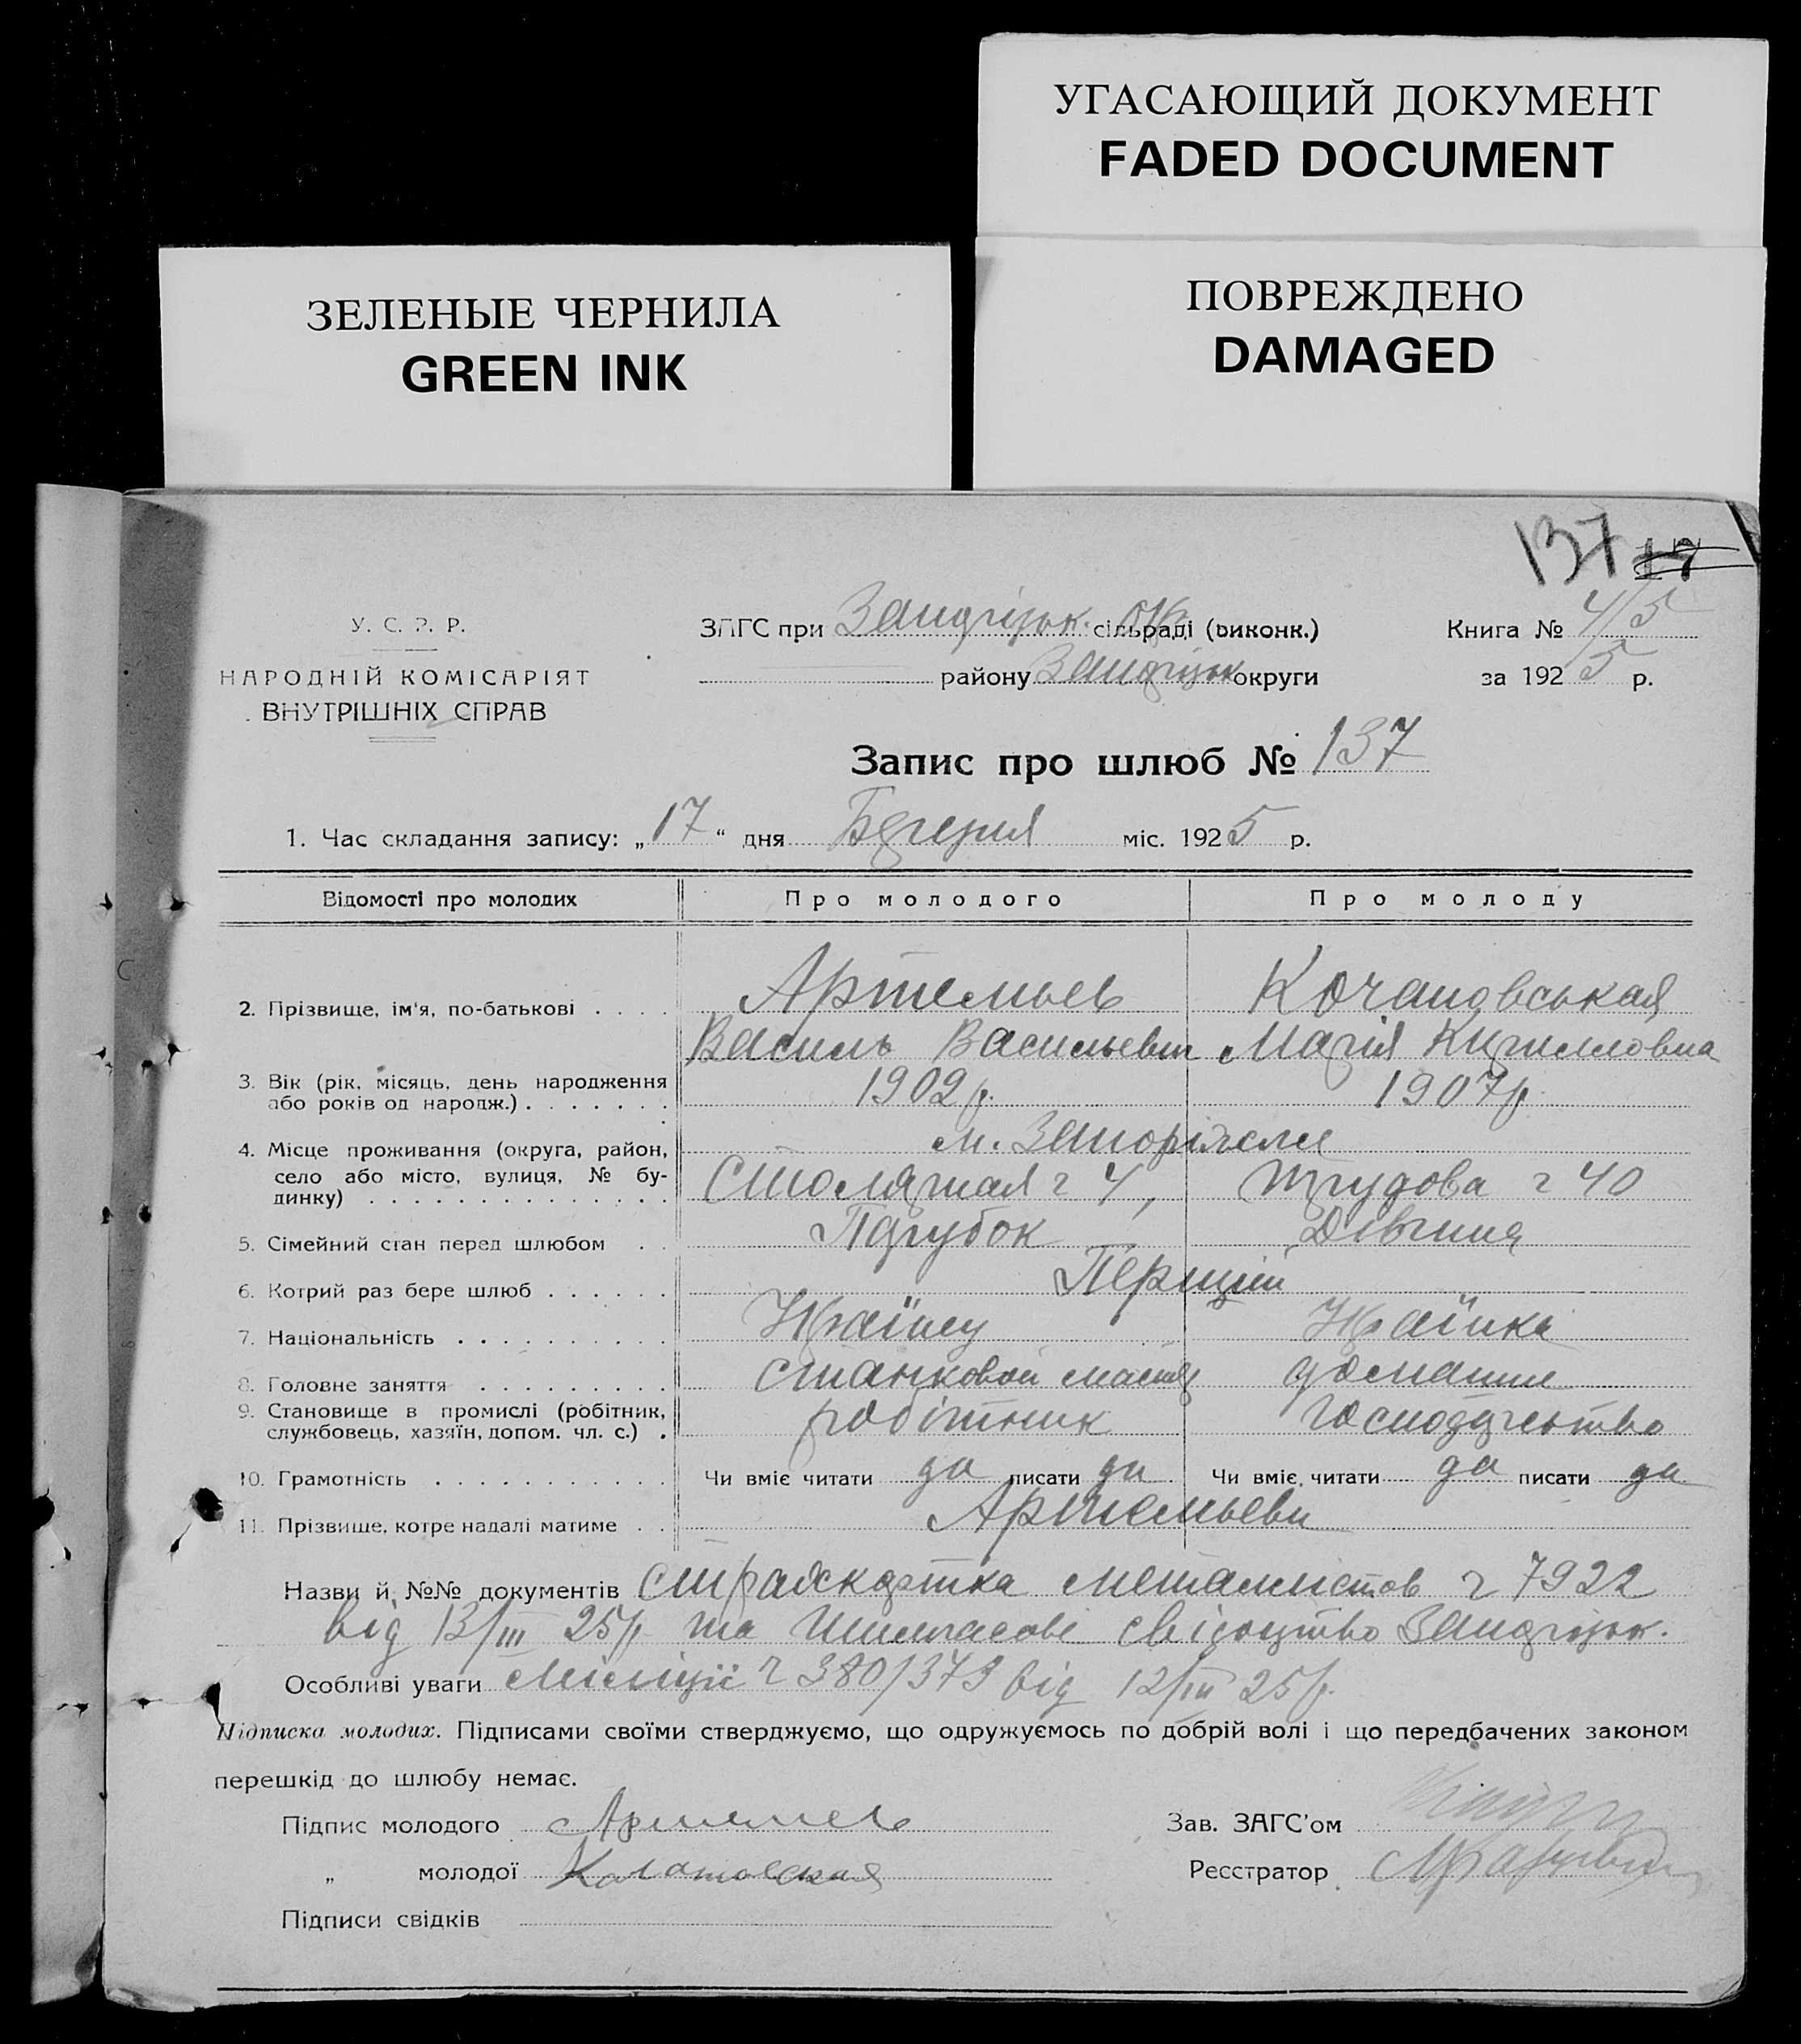 УГАСАЮЩИЙ ДОКУМЕНТ
FADED DOCUMENT
ЗЕЛЕНЫЕ ЧЕРНИЛА
GREEN INK
ПОВРЕЖДЕНО
DAMAGED
137 17
У. С. Р. Р.
НАРОДНІЙ КОМІСАРІЯТ
ВНУТРІШНІХ СПРАВ
ЗАГС при сільраді (виконк.)
району округи
Книга № 4/5
за 1925 р.
Запис про шлюб № 137
1. Час складання запису: „17“ дня Березня міс. 1925 р.
Відомості про молодих Про молодого Про молоду
2. Прізвище, ім'я, по-батькові Артемьев Кочановськая
Василь Васильевич Марія Кирилловна
3. Вік (рік, місяць, день народження 1902 р. 1907 р.
або років од народж.)
4. Місце проживання (округа, район, м. Запоріжжя
село або місто, вулиця, № бу- Столярная ч 4, Трудова ч 40
динку)
5. Сімейний стан перед шлюбом Парубок Дівчина
6. Котрий раз бере шлюб Перший
7. Національність
8. Головне заняття становой домашне
9. Становище в промислі (робітник, робітник господарьство
службовець, хазяїн, допом. чл. с.)
10. Грамотність Чи вміє читати да писати да Чи вміє читати да писати да
11. Прізвище, котре надалі матиме Артемьеви
Назви й №№ документів страхкартка металистов ч 7922
від 13/III 25 р. та
Особливі уваги Міліції ч 380/379 від 12/III 25 р.
Підписка молодих. Підписами своїми стверджуємо, що одружуємось по добрій волі і що передбачених законом
перешкід до шлюбу немає.
Підпис молодого Артемьев
„ молодої
Підписи свідків
Зав. ЗАГС'ом
Реєстратор